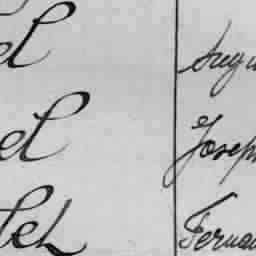 el Augu
el Joseph
let Fernan